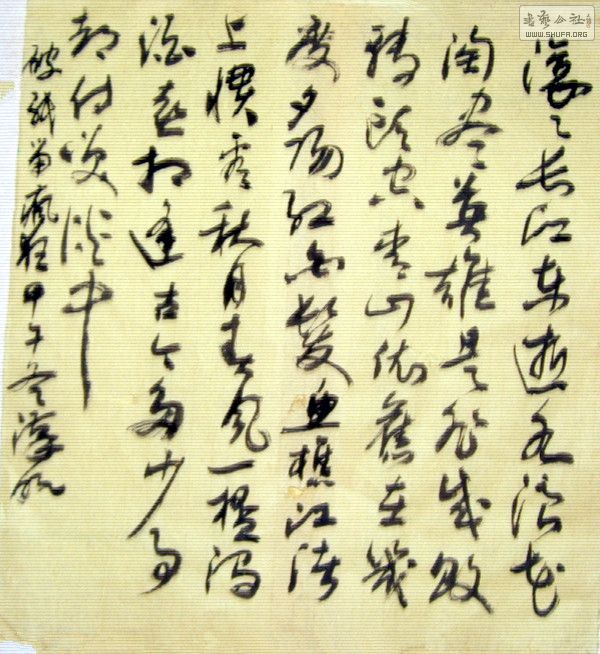 書藝公社
WWW.SHUFA.ORG
滚々长江东逝水浪花
淘尽英雄是非成败
转头空青山依舊在幾
度夕阳红白髮渔樵江渚
上惯看秋月春风一浊
酒喜相逢古今多少事
都付笑谈中
破纸当疯狂甲午冬